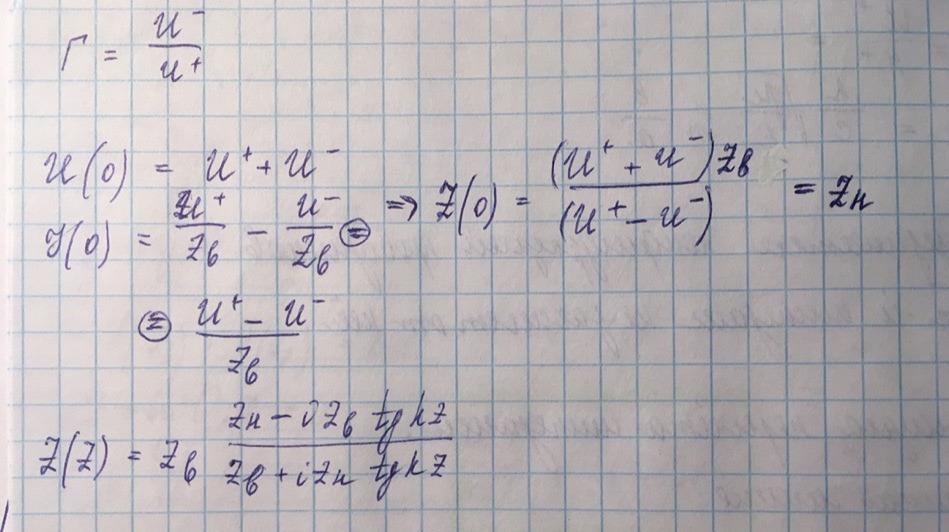 Г = U⁻ / U⁺
U(0) = U⁺ + U⁻
J(0) = U⁺ / Zв − U⁻ / Zв ⊜ ⇒ Z(0) = (U⁺ + U⁻) Zв / (U⁺ − U⁻) = Zн
⊜ U⁺ − U⁻ / Zв
Z(Z) = Zв Zн − i Zв tg kZ / Zв + i Zн tg kZ